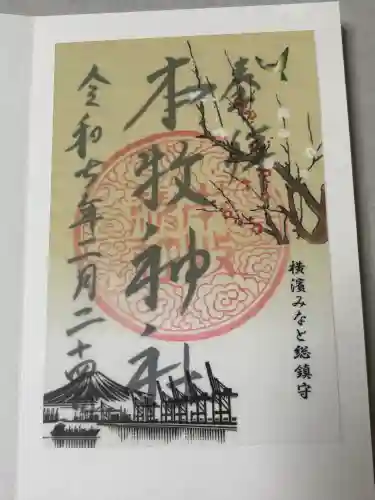 奉拝
横濱みなと総鎮守
本牧神社
令和七年二月二十四